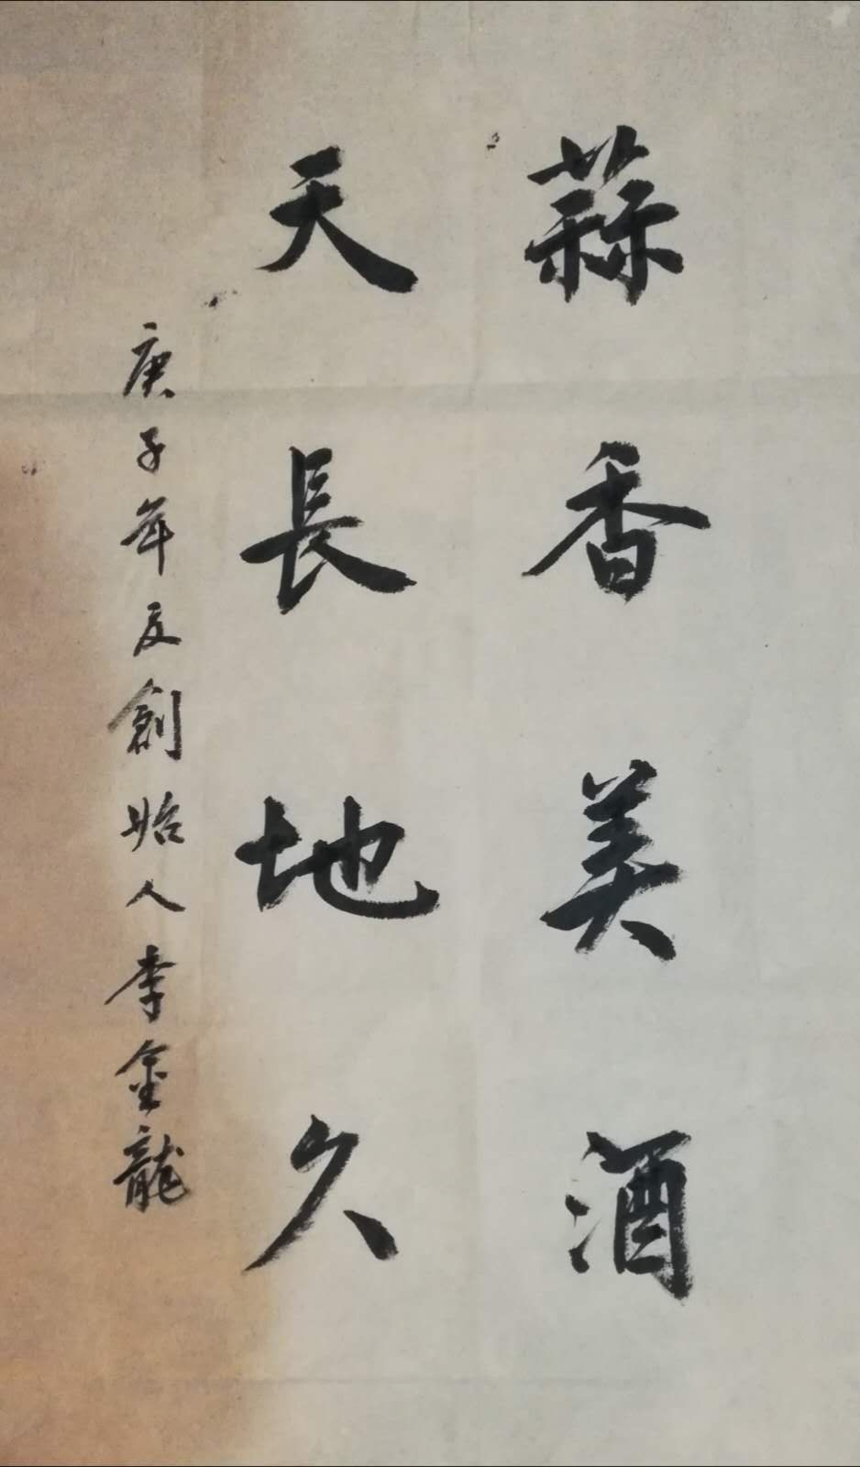 蒜香美酒
天長地久
庚子年夏創始人李金龍